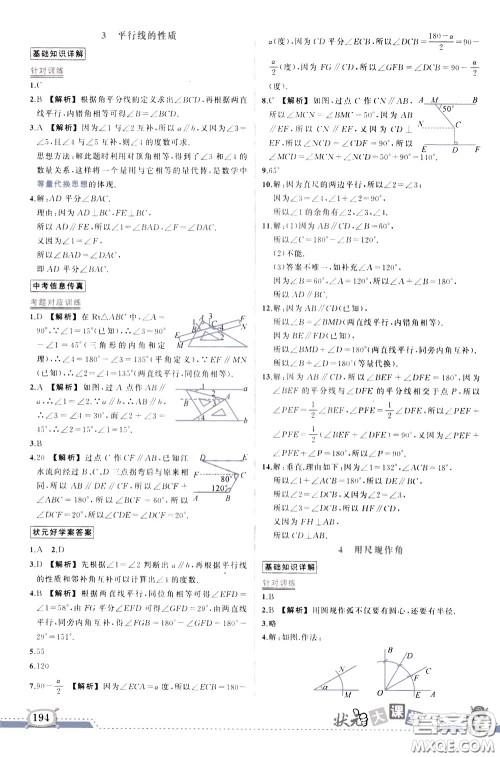 3 平行线的性质
基础知识详解
针对训练
1.C
2.B 【解析】根据角平分线的定义求出∠BCD,再根据两直
线平行,内错角相等可得∠B=∠BCD.
3.A 【解析】因为∠1与∠2互补,所以a∥b,又因为∠3=
∠5,∠4与∠5互补,所以∠3与∠4互补.
思想方法:解此题时利用对顶角相等,得到了∠3和∠4的
数量关系,这样将一个量用与它相等的量代替,是数学中
等量代换思想的体现.
4.解:AD平分∠BAC.
理由:因为AD⊥BC,FE⊥BC,
所以AD∥FE,所以∠1=∠BAD,∠F=∠DAC.
又因为∠1=∠F,
所以∠BAD=∠DAC,
即AD平分∠BAC.
中考信息传真
考题对应训练
1.D 【解析】在Rt△ABC中,∠A=
90°,∵∠1=15°(已知),∴∠3=90°-
(三角形的内角和定
理),∴∠4=180°-∠3=
(平角定义),∵EF∥MN
(已知),∴∠2=∠4=
(两直线平行,同位角相等).
2.A 【解析】如图,过点A作AB∥
a,∴∠1=∠2.∵a∥b,∴AB∥
b,∴∠3=∠4=30°,而∠2+∠3=
45°,∴∠2=15°,∴∠1=15°.
3.B
4.20 【解析】过点C作CF∥AB,已知江
水流向经过B、C、D三点拐弯后与原来相
同,所以AB∥DE∥CF,所以∠BCF+
∠ABC=180°,所以∠BCF=60°,所以
∠DCF=20°,所以∠CDE=∠DCF=20°.
80°
120°
状元好学案答案
1.A 2.D
3.D 【解析】先根据∠1=∠2判断出a∥b,再根据平行线的
性质和邻补角互补可以计算出∠1的度数.
4.B 【解析】根据两直线平行,同位角相等可得∠EFD=
∠1=58°,由FG平分∠EFD可得∠GFD=29°,由两直线
平行,同旁内角互补可得∠FGB=180°-∠GFD=180°-
29°=151°.
5.55
6.120
7.90-a/2 【解析】因为∠ECA=a度,所以∠ECB=180-
a(度),因为CD平分∠ECB,所以∠DCB=(180-a)/2=90-
a/2(度),因为CD∥GF,所以∠GFB=∠DCB=90-
a/2(度).
8.C 【解析】如图,过点C作CN∥AB,
所以∠MCN=50°.因为AB
∥EF,所以CN∥EF,因为CD
⊥EF,所以∠NCD=90°,所以
∠MCD=∠MCN+∠NCD=140°.
50°
9.65°
10.解:因为直尺的两边平行,所以∠2=∠3;
因为∠3+∠4=90°,∠1+∠2=90°,
所以∠1的余角有∠2,∠3.
11.解:(1)因为AB∥CD,所以∠B+∠C=180°,
所以∠C=180°-∠B=180°-60°=120°.
(2)不能.
(3)答案不唯一,如补充∠A=120°,
则∠D=180°-∠A=60°.
12.解:因为AB∥CD(已知),
所以∠B=∠BMD(两直线平行,内错角相等).
因为BE∥FD(已知),
所以∠BMD+∠D=180°(两直线平行,同旁内角互补),
所以∠B+∠D=180°(等量代换).
13.解:因为AB∥CD,所以∠BEF+∠DFE=180°,因为
∠BEF的平分线与∠DFE的平分线相交于点P,所以
∠PEF=1/2∠BEF,∠PFE=1/2∠DFE,所以∠PEF+
∠PFE=1/2(∠BEF+∠DFE)=90°,因为∠PEF+
∠PFE+∠P=180°,所以∠P=90°.
14.解:垂直.理由如下:因为∠1=132°,∠ACB=18°,
所以∠1+∠ACB=180°,
所以DE∥BC,所以∠2=∠DCB.
又因为∠2=∠3,所以∠3=∠DCB,
所以HF∥CD.
又因为FH⊥AB,
所以CD⊥AB.
4 用尺规作角
基础知识详解
针对训练
1.B
2.B 【解析】用圆规作弧不仅要有圆心,还要有半径.
3.略
4.解:如图.作法:
194
状元大课堂